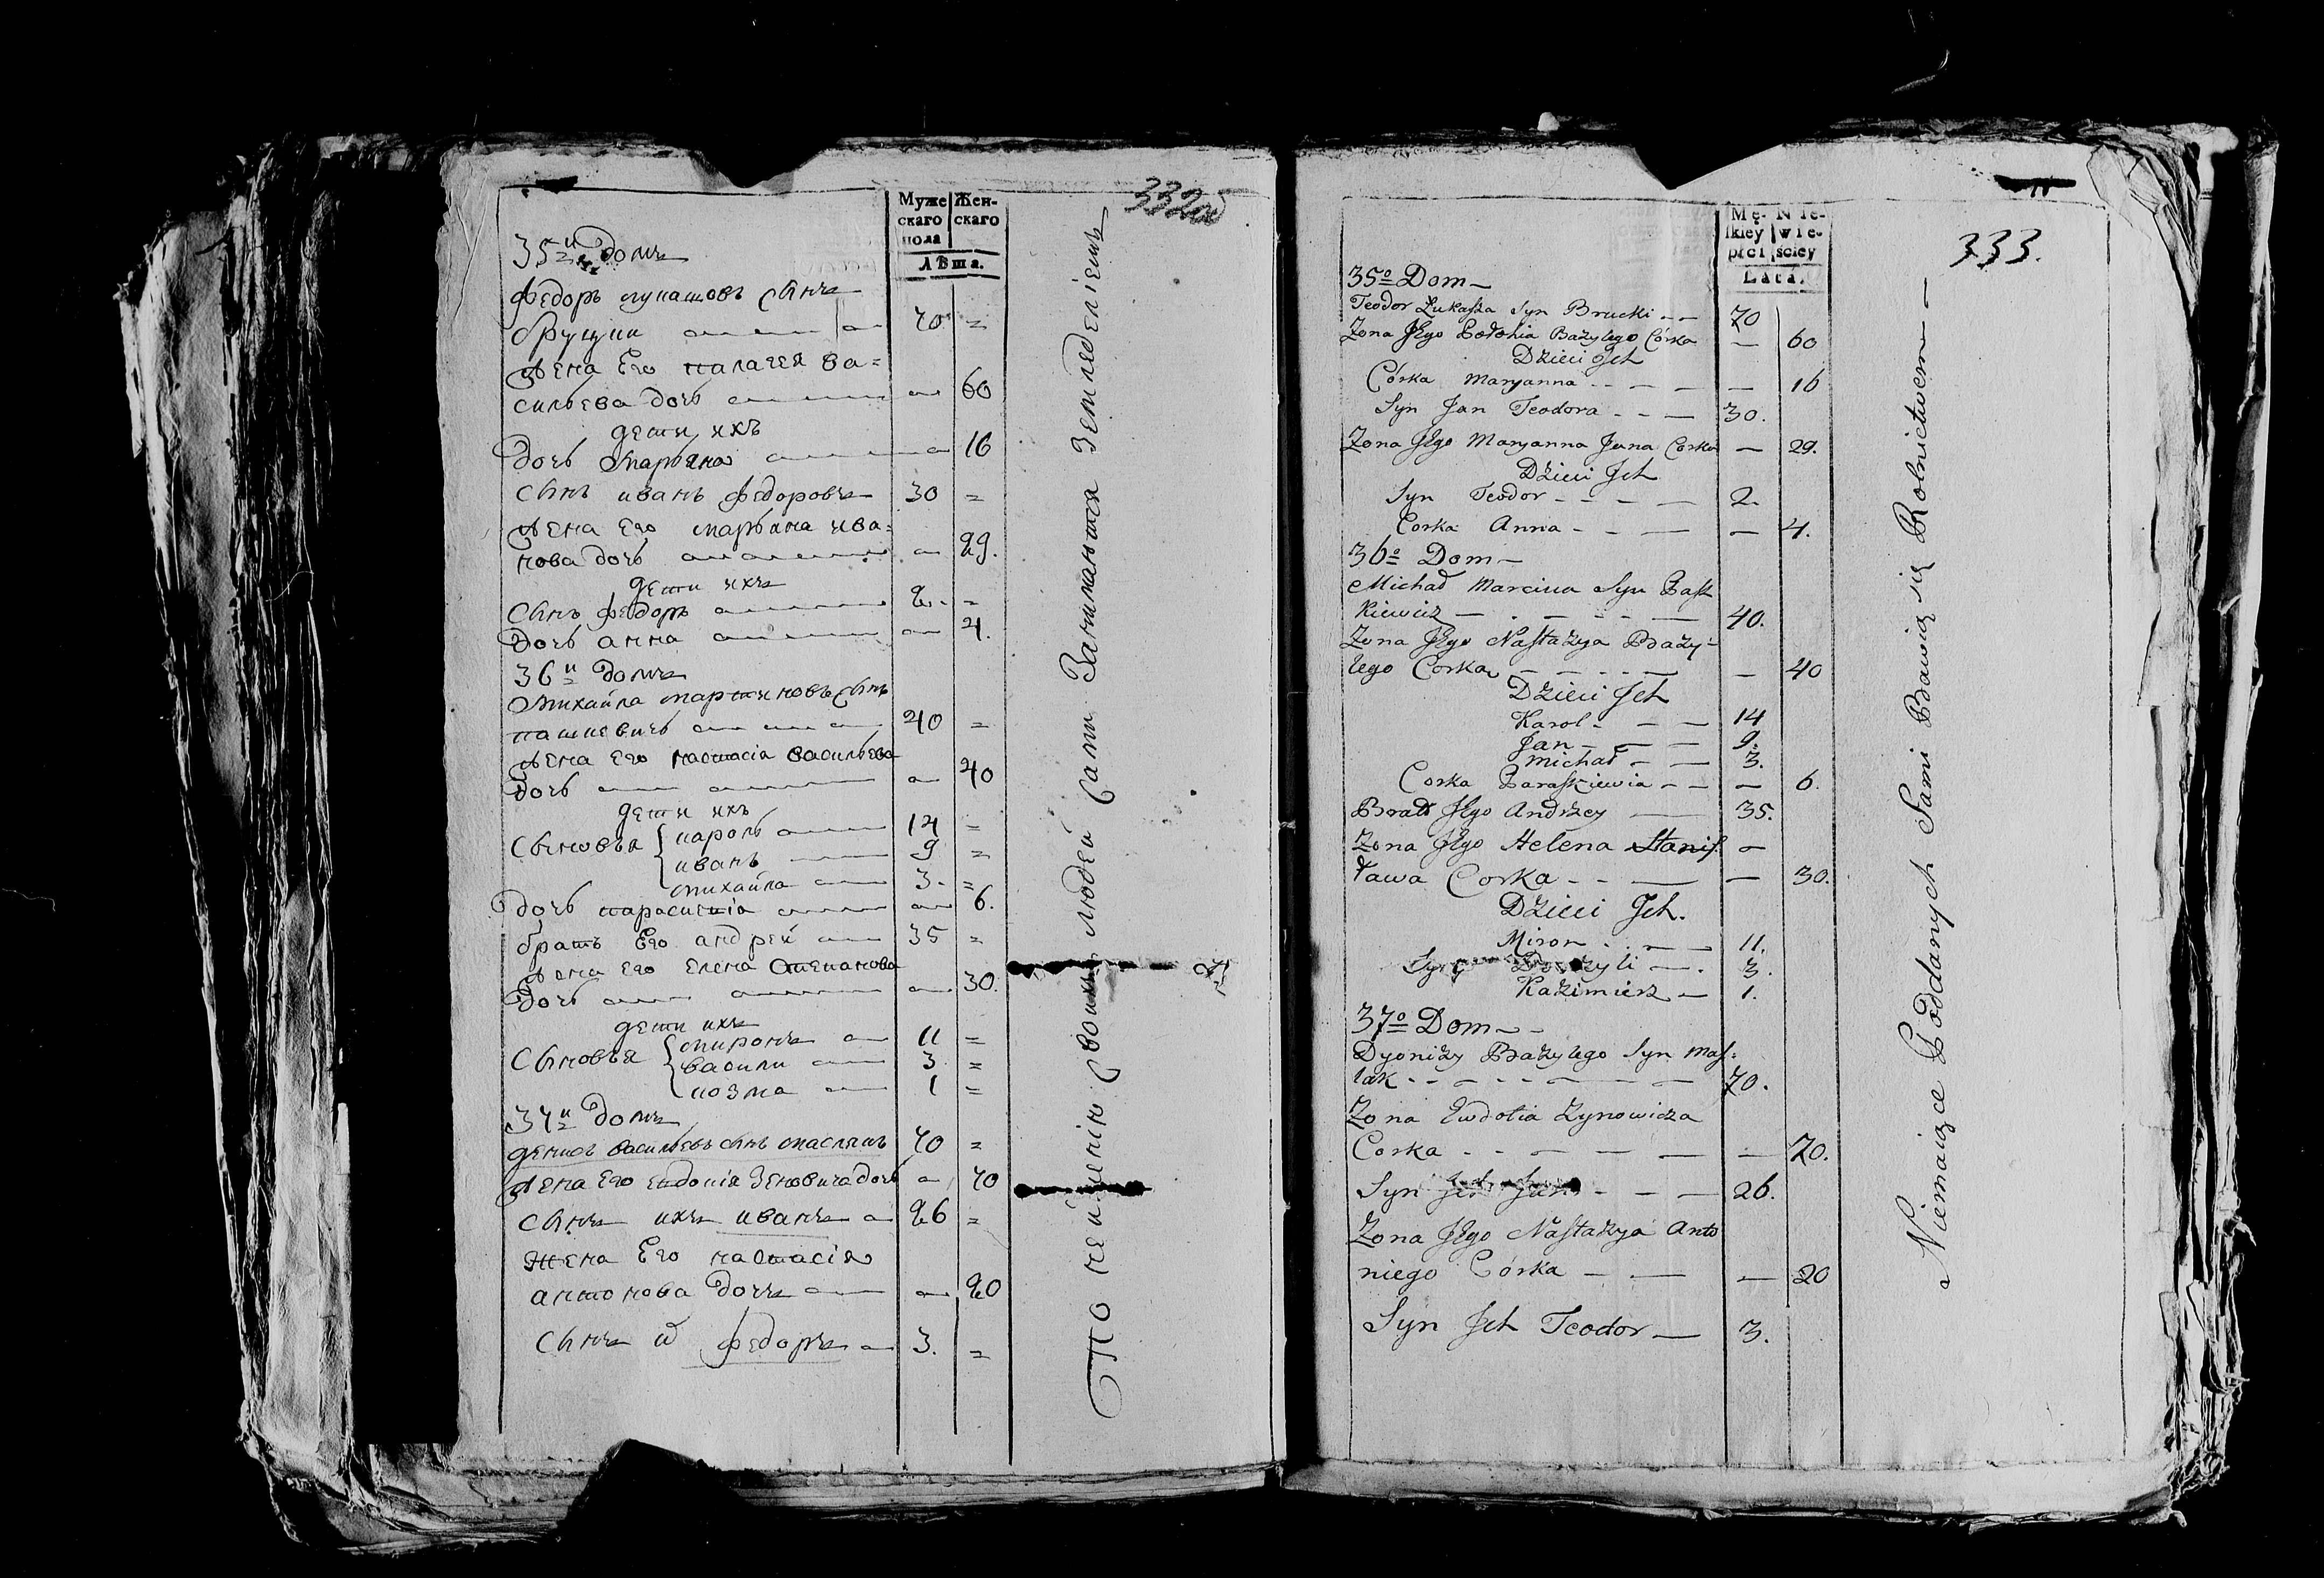 332об
Муже
скаго
пола
Жен-
скаго
Лѣта.
35й домъ
Федоръ лукашовъ сынъ
бруцки 70 =
жена Его палагея ва=
сильева дочь 60
дети ихъ
дочь Марьяна 16
сынъ иванъ федоровъ 30 =
жена Его марьяна ива=
нова дочь 29.
дети ихъ
сынъ федоръ 2. =
дочь анна 4.
36й домъ
Михайла мартиновъ сынъ
пашкевичь 40 =
жена Его настасія васильева
дочь 40
дети ихъ
сыновья { кароль 14 =
иванъ 9 =
михайла 3. =
дочь параскевія 6.
братъ Его андрей 35 =
жена Его елена Степанова
дочь 30.
дети ихъ
сыновья { миронъ 11 =
васили 3 =
козма 1 =
37й домъ
денисъ васильевъ сынъ маслякъ 70 =
жена Его евдокія Зеновича дочь 70
сынъ ихъ иванъ 26 =
жена Его настасія
антонова дочь 20
сынъ федоръ 3. =
По неимѣнію своихъ людей Сами Занимаются Земледеліемъ
333.
Mę-
skiey
płci
Nie-
wie-
ściey
Lata.
35o Dom
Teodor Łukasza Syn Brucki 70
Zona Jego Pelahia Bazylego Córka — 60
Dzieci Jch
Córka Maryanna — 16
Syn Jan Teodora 30.
Zona Jego Maryanna Jana Corka — 29.
Dzieci Jch
Syn Teodor 2.
Corka Anna — 4.
36o Dom
Michał Marcina Syn Pasz
kiewicz 40.
Zona Jego Nastazya Bazy=
lego Corka — 40
Dzieci Jch
Karol 14
Jan 9.
Michał 3.
Corka Paraskiewia — 6.
Bratt Jego Andrzey 35.
Zona Jego Helena Stanis —
ława Corka — 30.
Dzieci Jch.
Miron 11.
Bazyli 3.
Kazimierz 1.
37o Dom
Dyonizy Bazylego Syn Mas=
lak 70.
Zona Ewdokia Zynowicza
Corka — 70.
Syn Jch Jan 26.
Zona Jego Nastazya Anto
niego Córka — 20
Syn Jch Teodor 3.
Niemaiąc Poddanych Sami Bawią się Rolnictwem